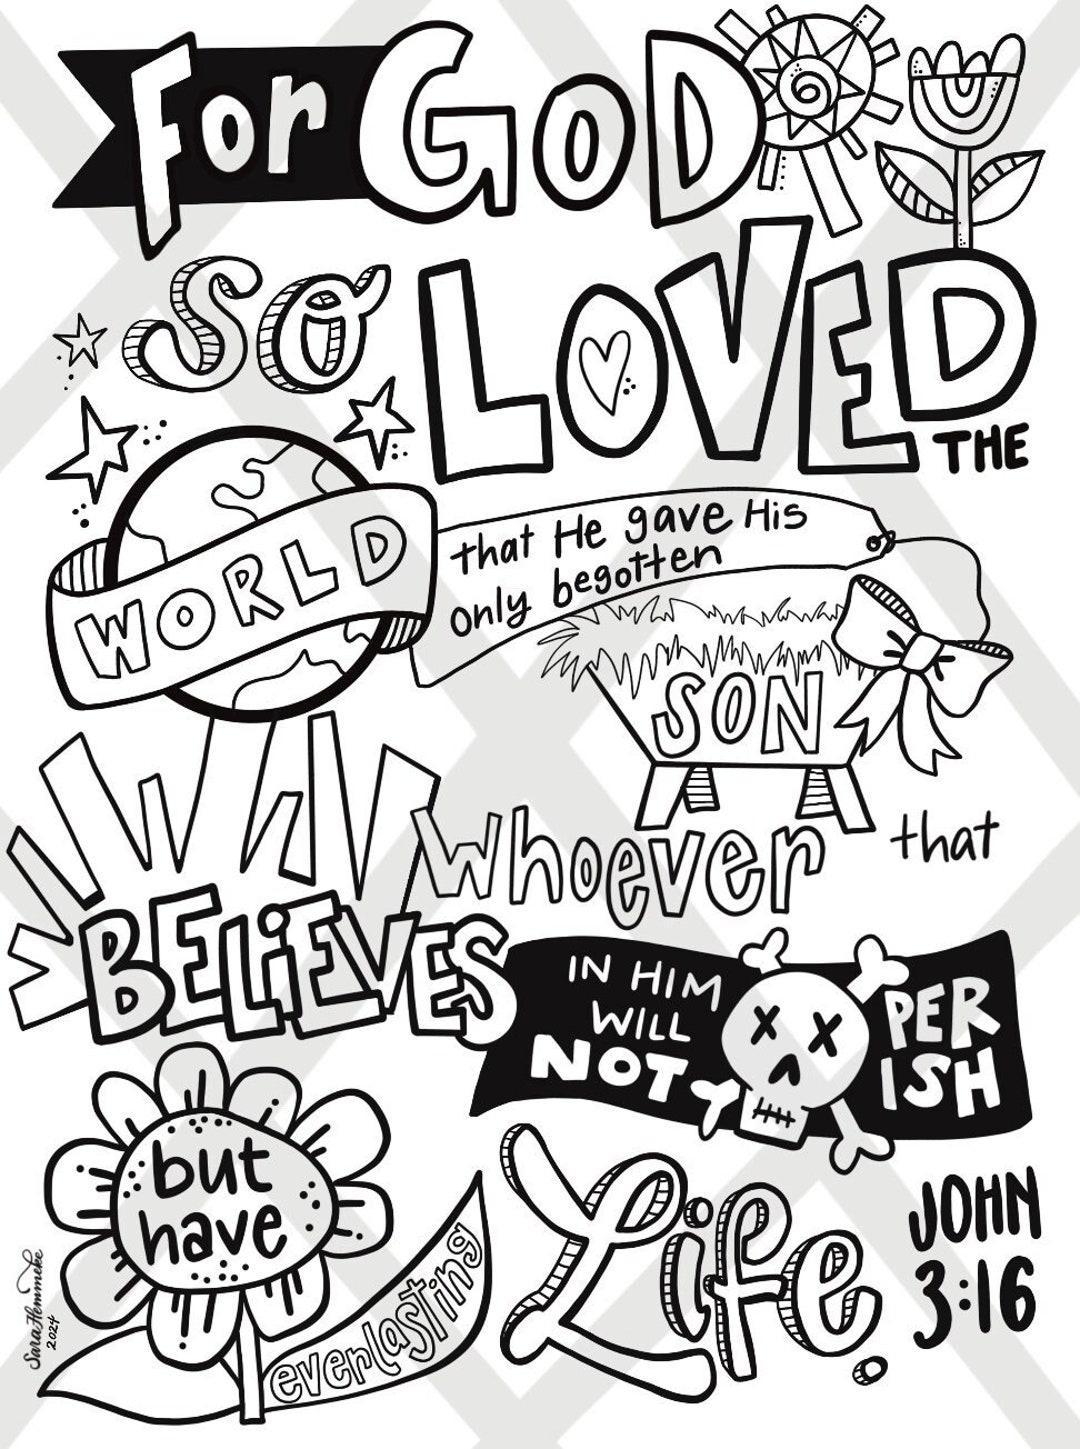 For GOD
SO LOVED
THE
WORLD
that He gave His
only begotten
SON
Whoever that
BELIEVES
IN HIM
WILL
NOT
PER
ISH
but
have
everlasting
Life.
JOHN
3:16
Sara Hemmeke
2024